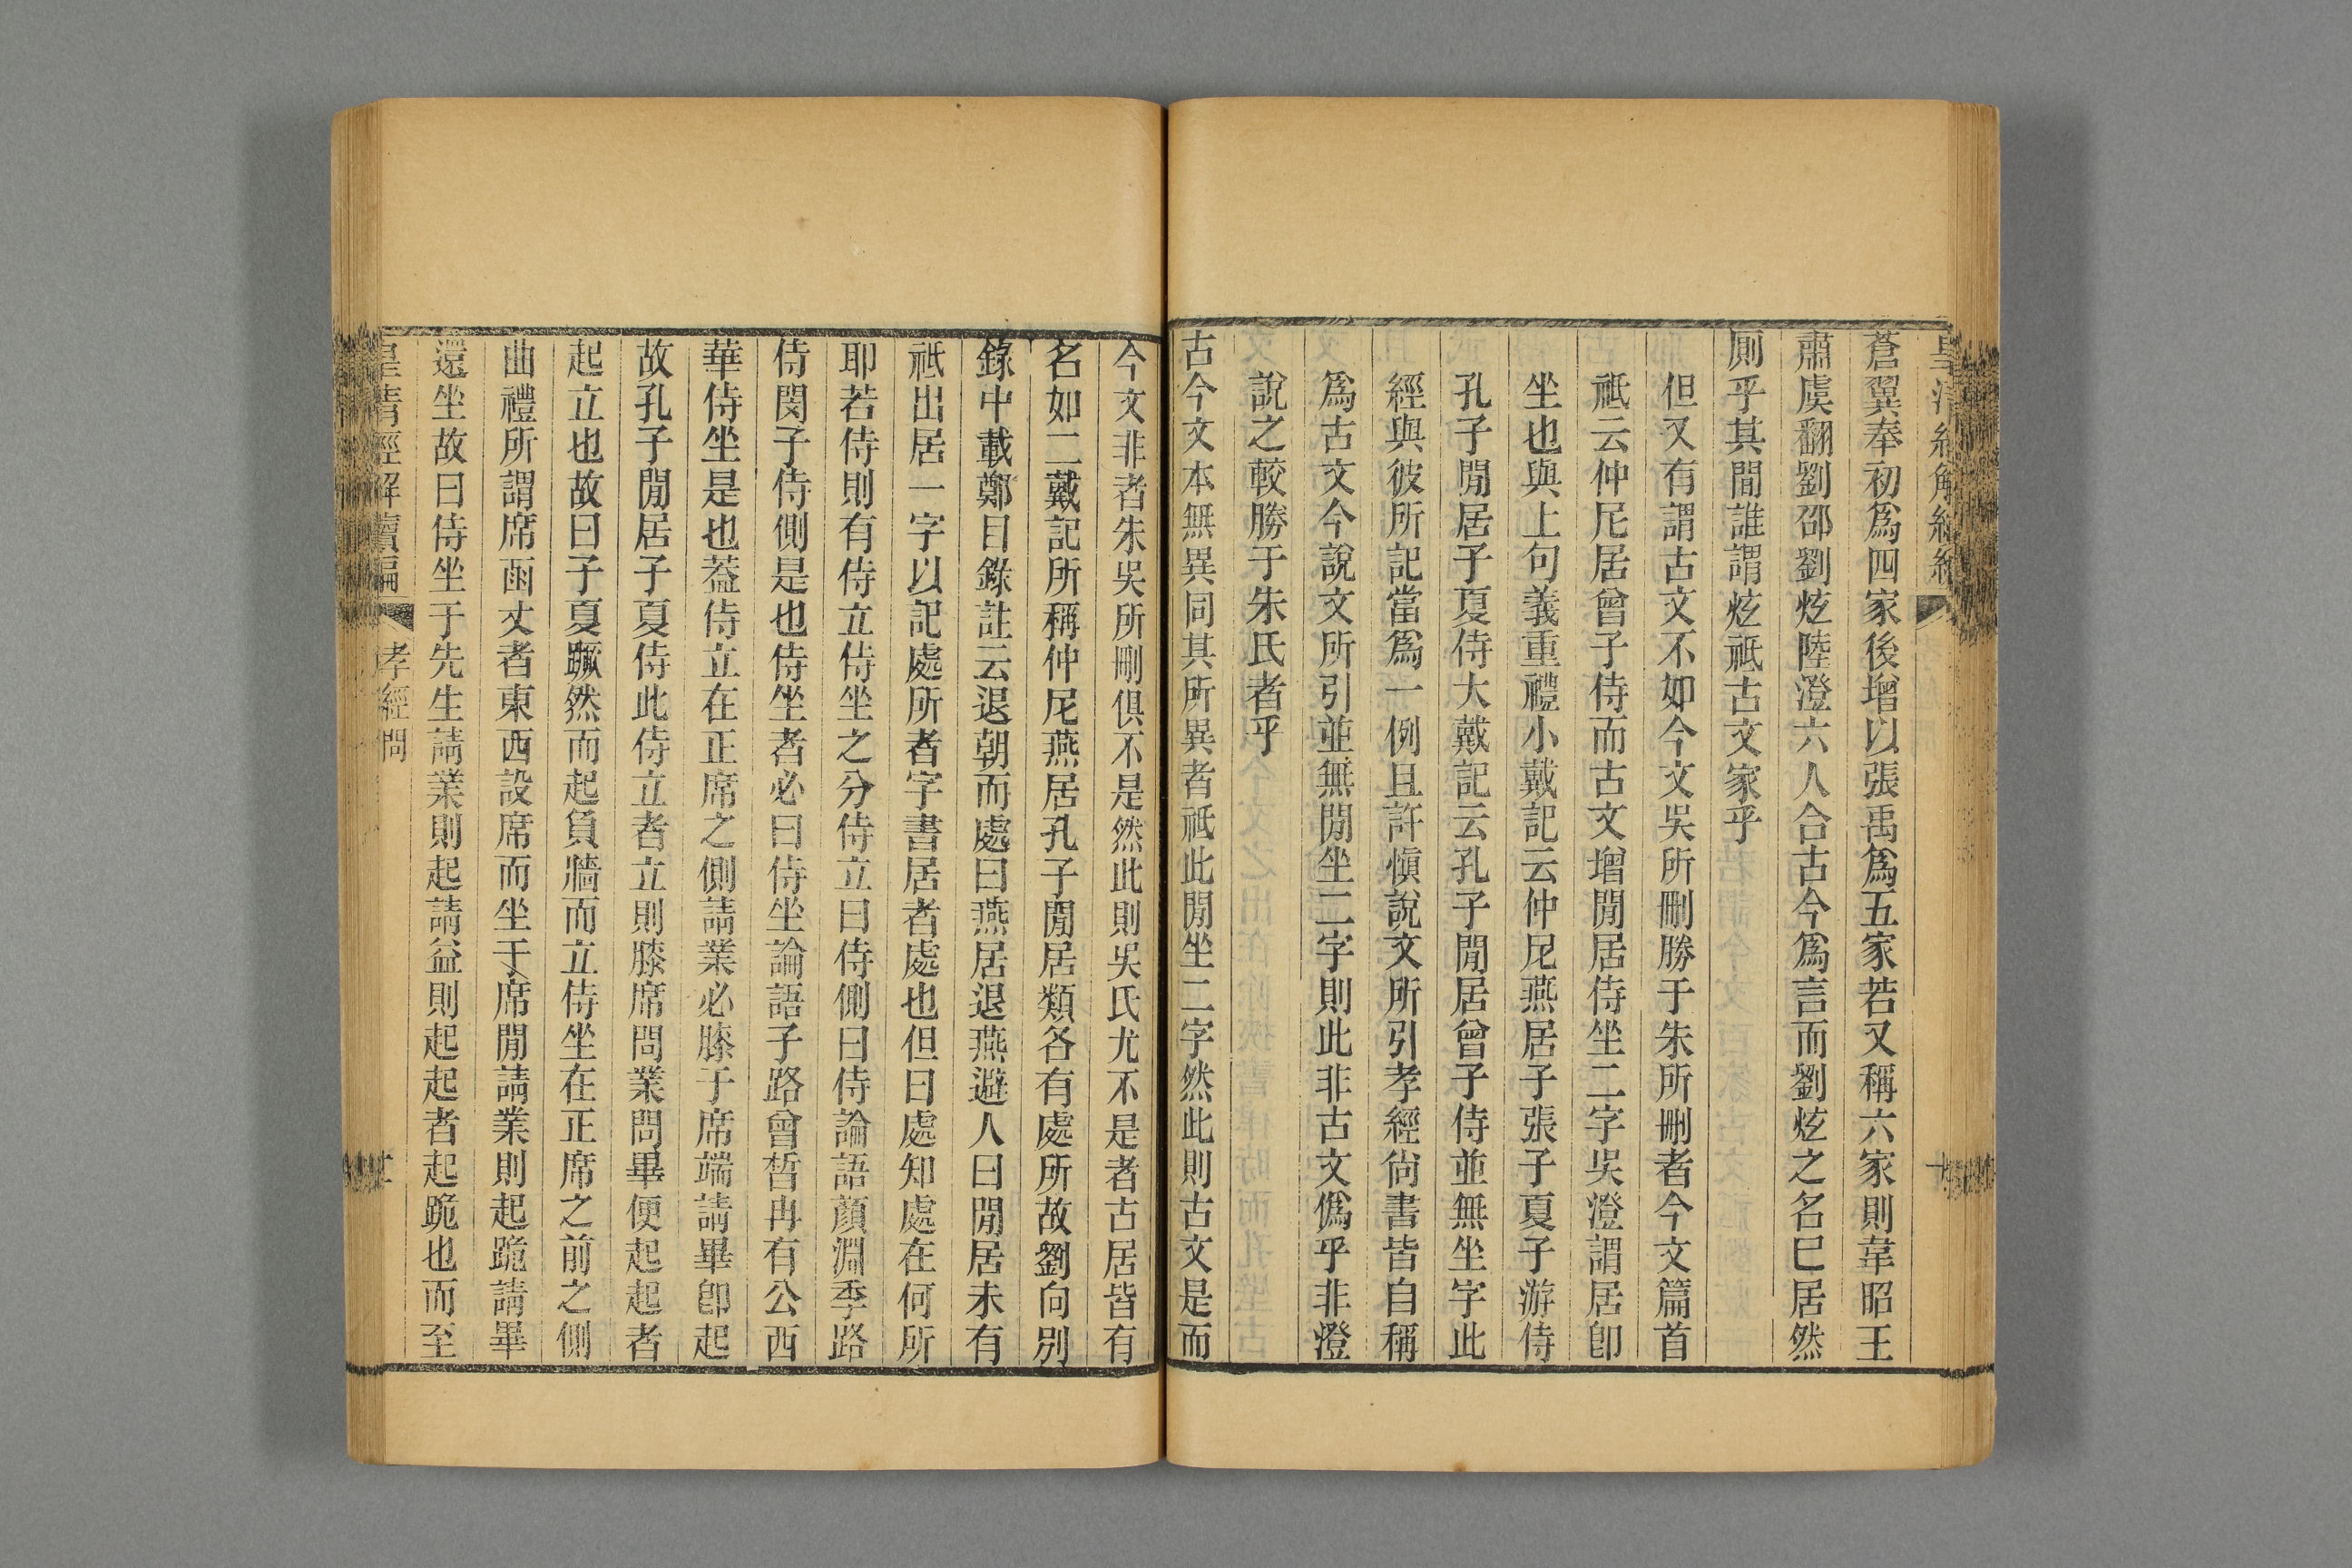 蒼翼奉初爲四家後增以張禹爲五家若又稱六家則韋昭王
肅虞翻劉邵劉炫陸澄六人合古今爲言而劉炫之名已居然
厠乎其間誰謂炫祗古文家乎
但又有謂古文不如今文吳所刪勝于朱所刪者今文篇首
祗云仲尼居曾子侍而古文增閒居侍坐二字吳澄謂居卽
坐也與上句義重禮小戴記云仲尼燕居子張子夏子游侍
孔子閒居子夏侍大戴記云孔子閒居曾子侍並無坐字此
經與彼所記當爲一例且許愼說文所引孝經尙書皆自稱
爲古文今說文所引並無閒坐二字則此非古文僞乎非澄
說之較勝于朱氏者乎
古今文本無異同其所異者祗此閒坐二字然此則古文是而
今文非者朱吳所刪俱不是然此則吳氏尤不是者古居皆有
名如二戴記所稱仲尼燕居孔子閒居類各有處所故劉向別
錄中載鄭目錄註云退朝而處曰燕居退燕避人曰閒居未有
祗出居一字以記處所者字書居者處也但曰處知處在何所
耶若侍則有侍立侍坐之分侍立曰侍側曰侍論語顏淵季路
侍閔子侍側是也侍坐者必曰侍坐論語子路曾晳冉有公西
華侍坐是也葢侍立在正席之側請業必膝于席端請畢卽起
故孔子閒居子夏侍此侍立者立則膝席問業問畢便起起者
起立也故曰子夏蹶然而起負牆而立侍坐在正席之前之側
曲禮所謂席函丈者東西設席而坐于席閒請業則起跪請畢
還坐故曰侍坐于先生請業則起請益則起起者起跪也而至
皇清經解續編 孝經問